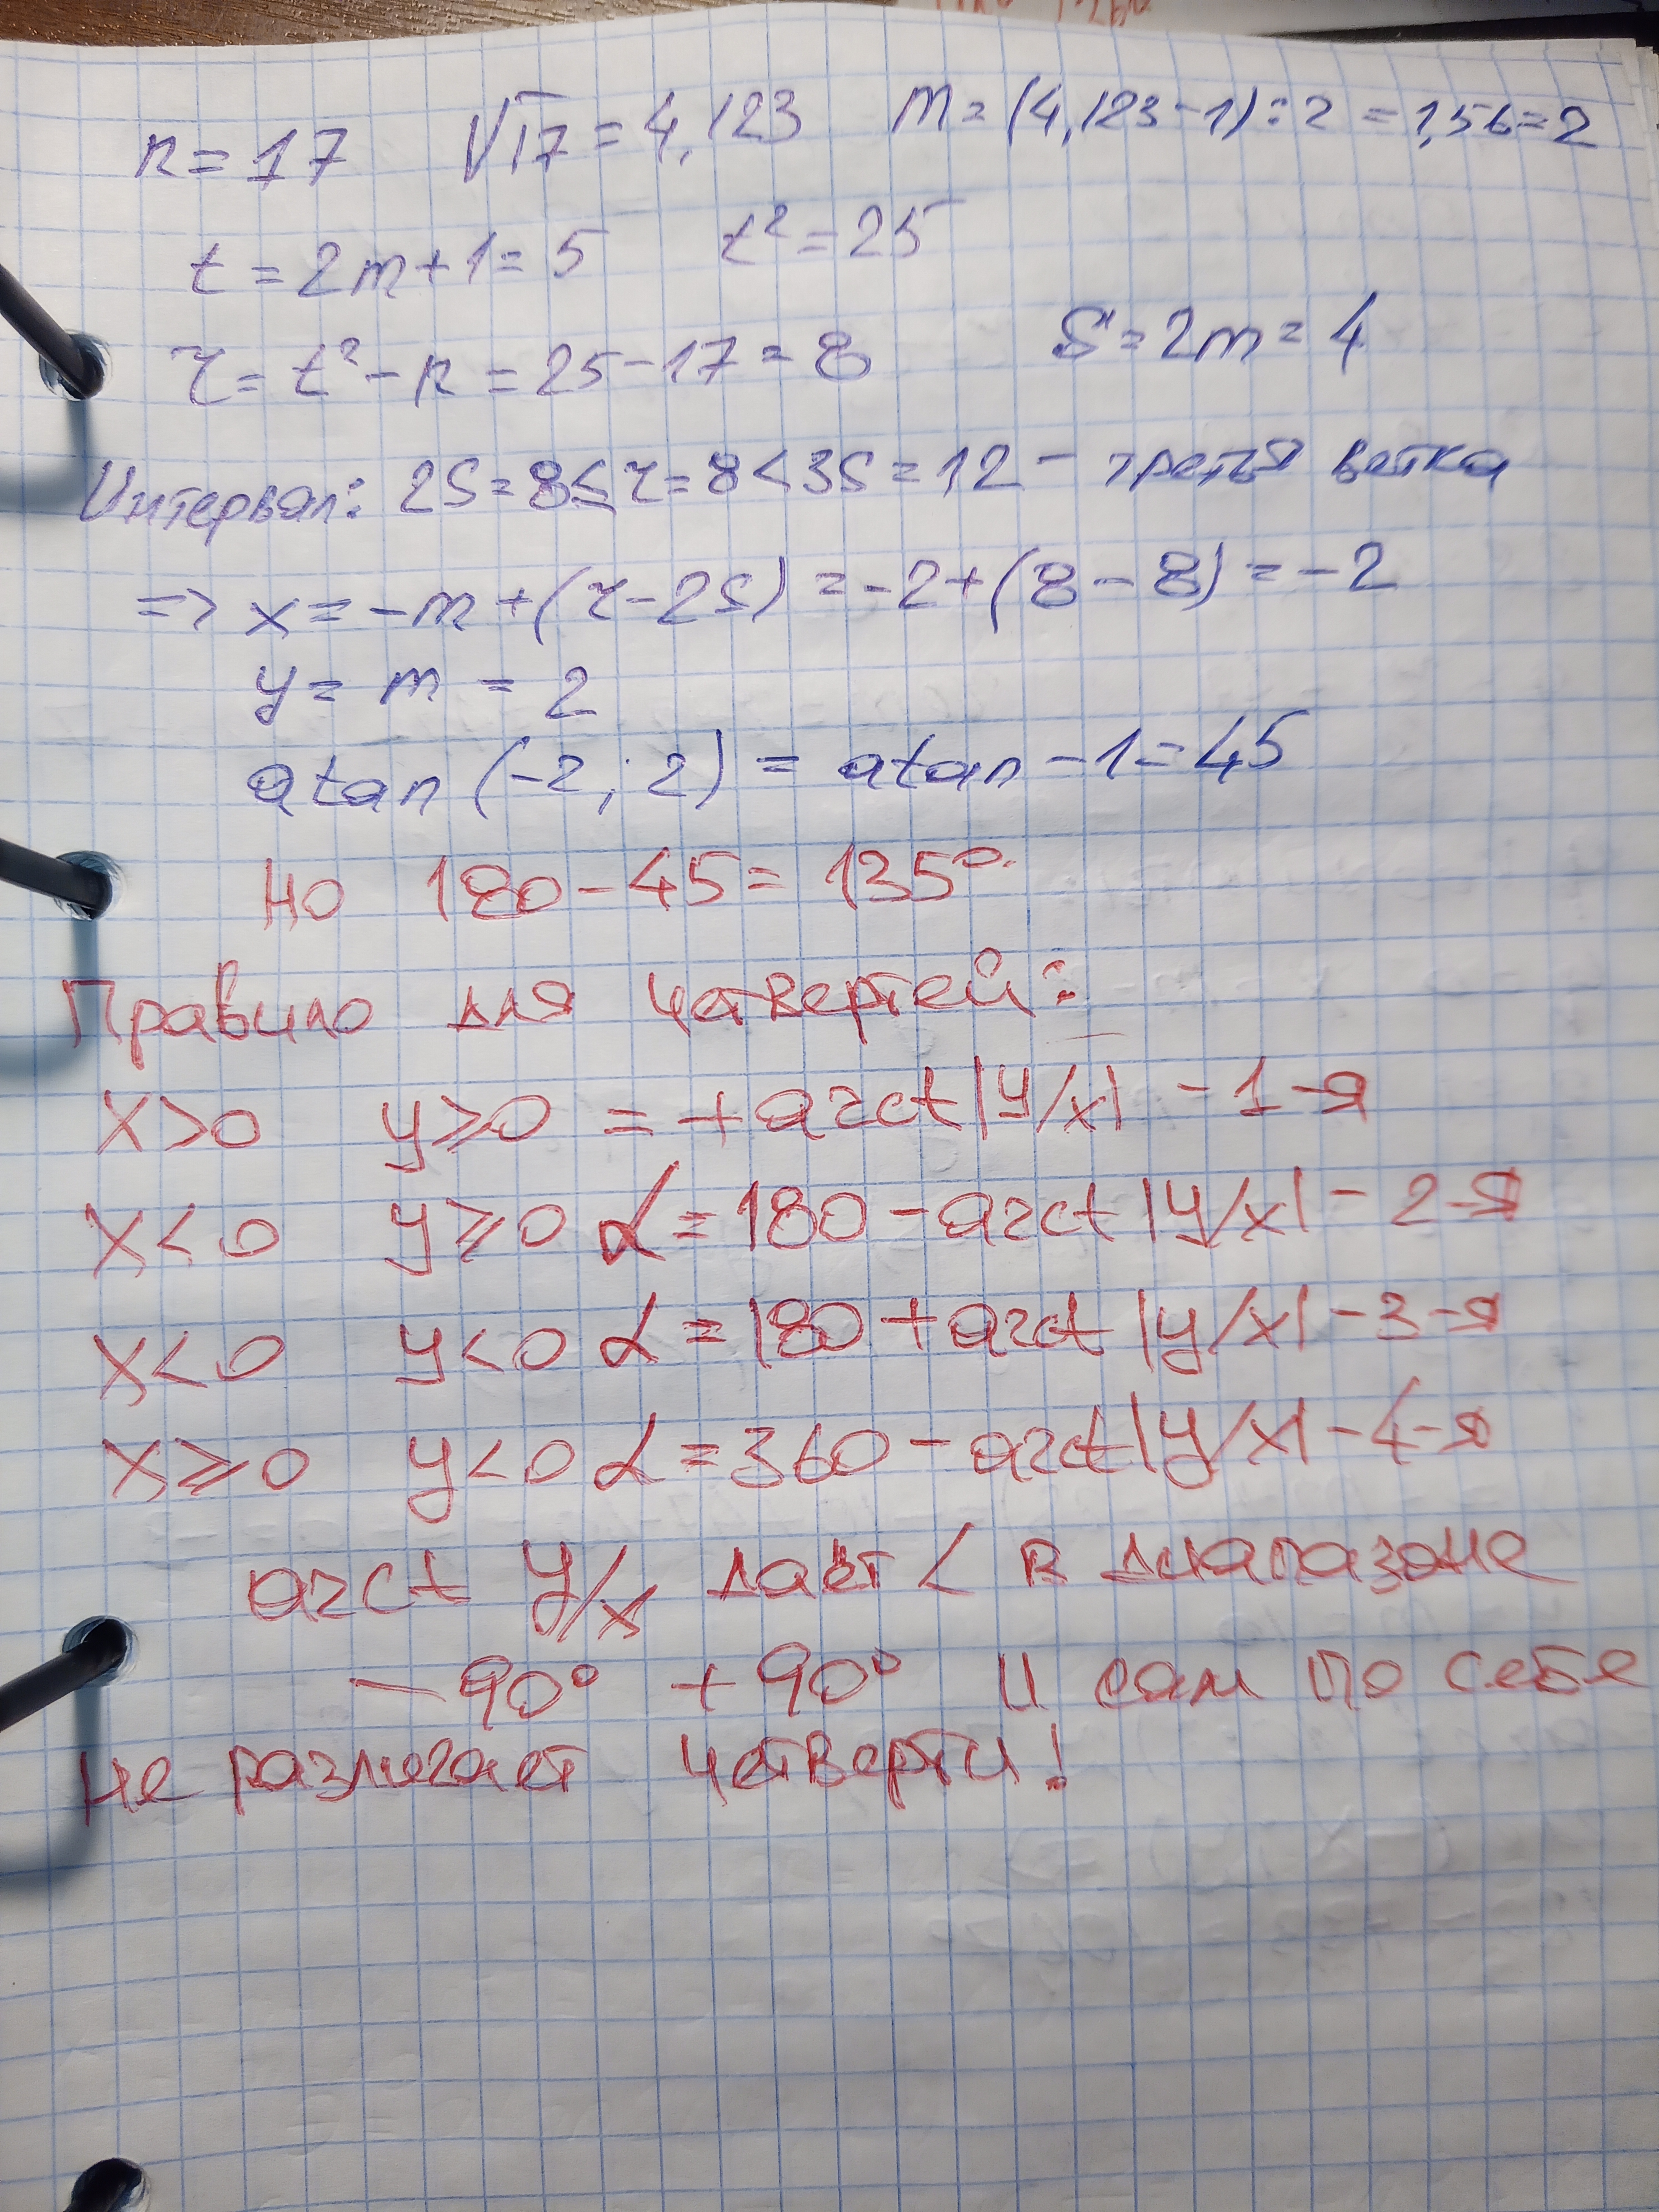 n = 17 √17 = 4,123 m = (4,123 - 1) : 2 = 1,56 = 2
t = 2m + 1 = 5 t² = 25
r = t² - n = 25 - 17 = 8 S = 2m = 4
Интервал: 2S = 8 ≤ r = 8 < 3S = 12 - третья ветка
=> x = -m + (r - 2S) = -2 + (8 - 8) = -2
y = m = 2
atan (-2; 2) = atan -1 = 45
Но 180 - 45 = 135°
Правило для четвертей:
x > 0 y ≥ 0 = + arct |y/x| - 1-я
x < 0 y ≥ 0 α = 180 - arct |y/x| - 2-я
x < 0 y < 0 α = 180 + arct |y/x| - 3-я
x ≥ 0 y < 0 α = 360 - arct |y/x| - 4-я
arct y/x даёт < в диапазоне
- 90° + 90° и сам по себе
не различает четверти!